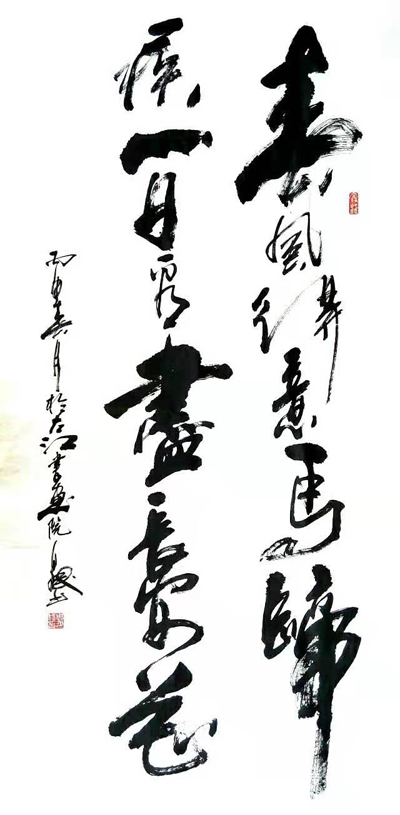 春風得意馬蹄
疾一日看盡長安花
丙申春月於左江書畫院